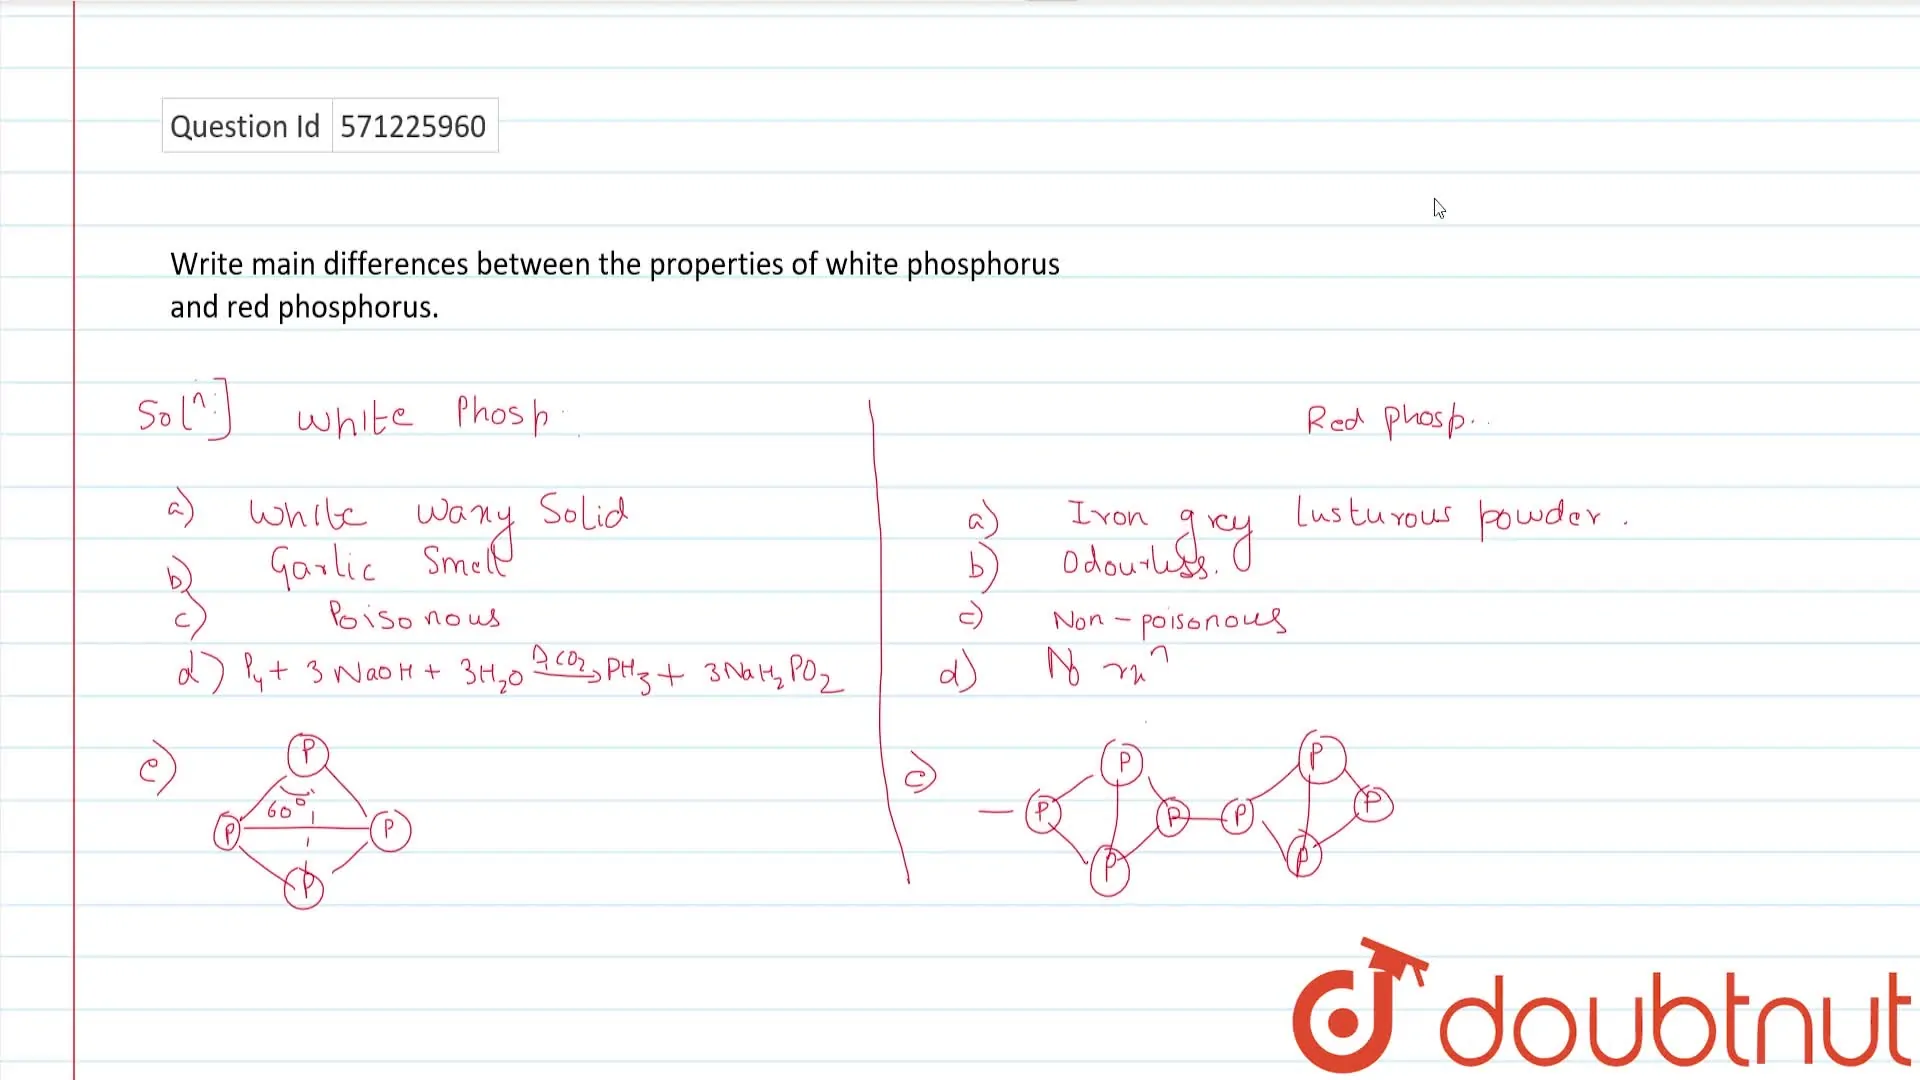 Question Id 571225960
Write main differences between the properties of white phosphorus
and red phosphorus.
Solⁿ:] White Phosp.
Red phosp..
a) White waxy Solid
a) Iron grey lusturous powder.
b) Garlic Smell
b) Odourless.
c) Poisonous
c) Non-poisonous
d) P₄ + 3NaOH + 3H₂O CO₂→ PH₃ + 3NaH₂PO₂
d) No rxⁿ
e) P 60° P P P
e) P P P P P P P P
doubtnut